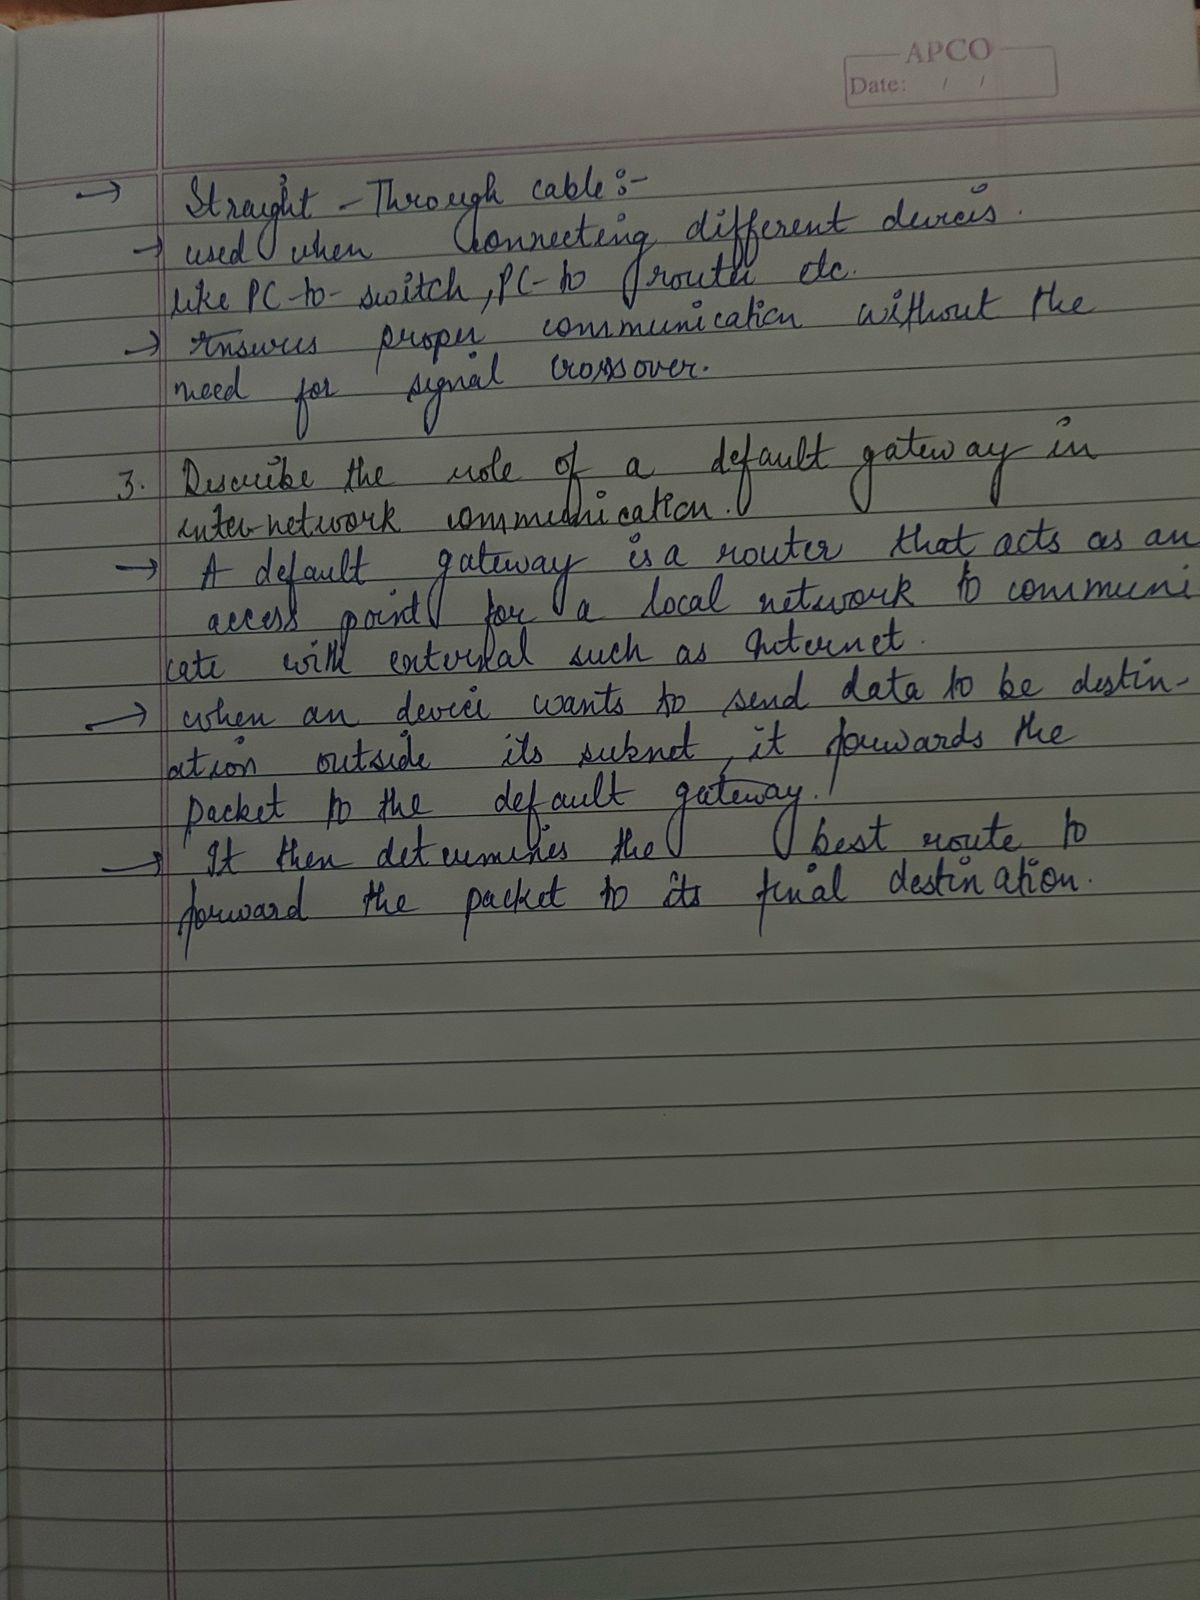 APCO
Date: / /
→ Straight - Through cable :-
→ used when connecting different devices.
like PC-to-switch, PC-to router etc.
→ Ensures proper communication without the
need for signal crossover.
3. Describe the role of a default gateway in
inter-network communication.
→ A default gateway is a router that acts as an
access point for a local network to communi
cate with external such as Internet.
→ when an device wants to send data to be destin-
ation outside its subnet, it forwards the
packet to the default gateway.
→ It then determines the best route to
forward the packet to its final destination.